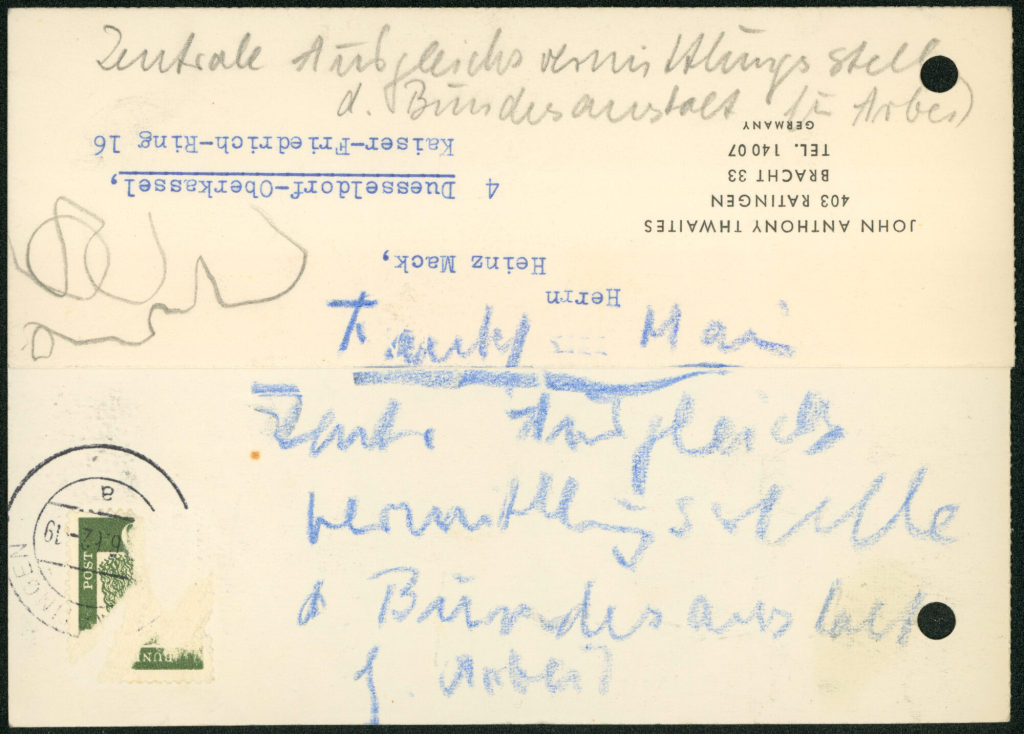 Zentrale Ausgleichsvermittlungsstelle
d. Bundesanstalt für Arbeit
JOHN ANTHONY THWAITES
403 RATINGEN
BRACHT 33
TEL. 140 07
GERMANY
Herrn
Heinz Mack,
4 Duesseldorf-Oberkassel,
Kaiser-Friedrich-Ring 16
Frankf Main
Zentr. Ausgleichs
vermittlungsstelle
d Bundesanstalt
f. Arbeit
a
-19
INGEN
POST
BUN